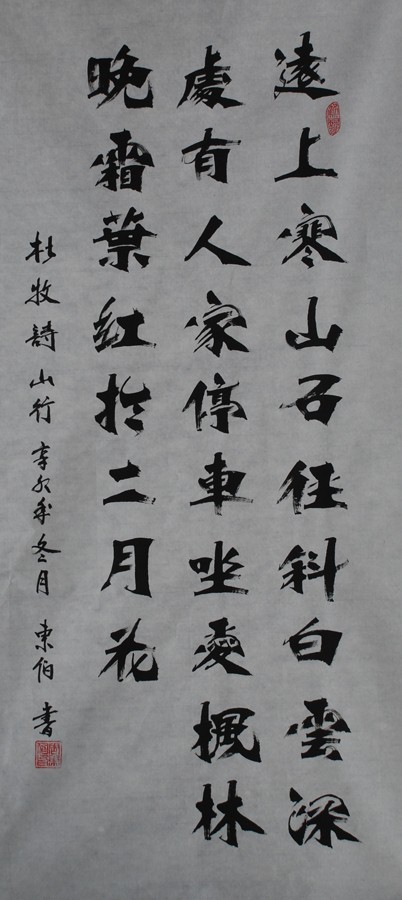 遠上寒山石徑斜白雲深
處有人家停車坐愛楓林
晚霜葉紅於二月花
杜牧詩山行辛卯年冬月東伯書